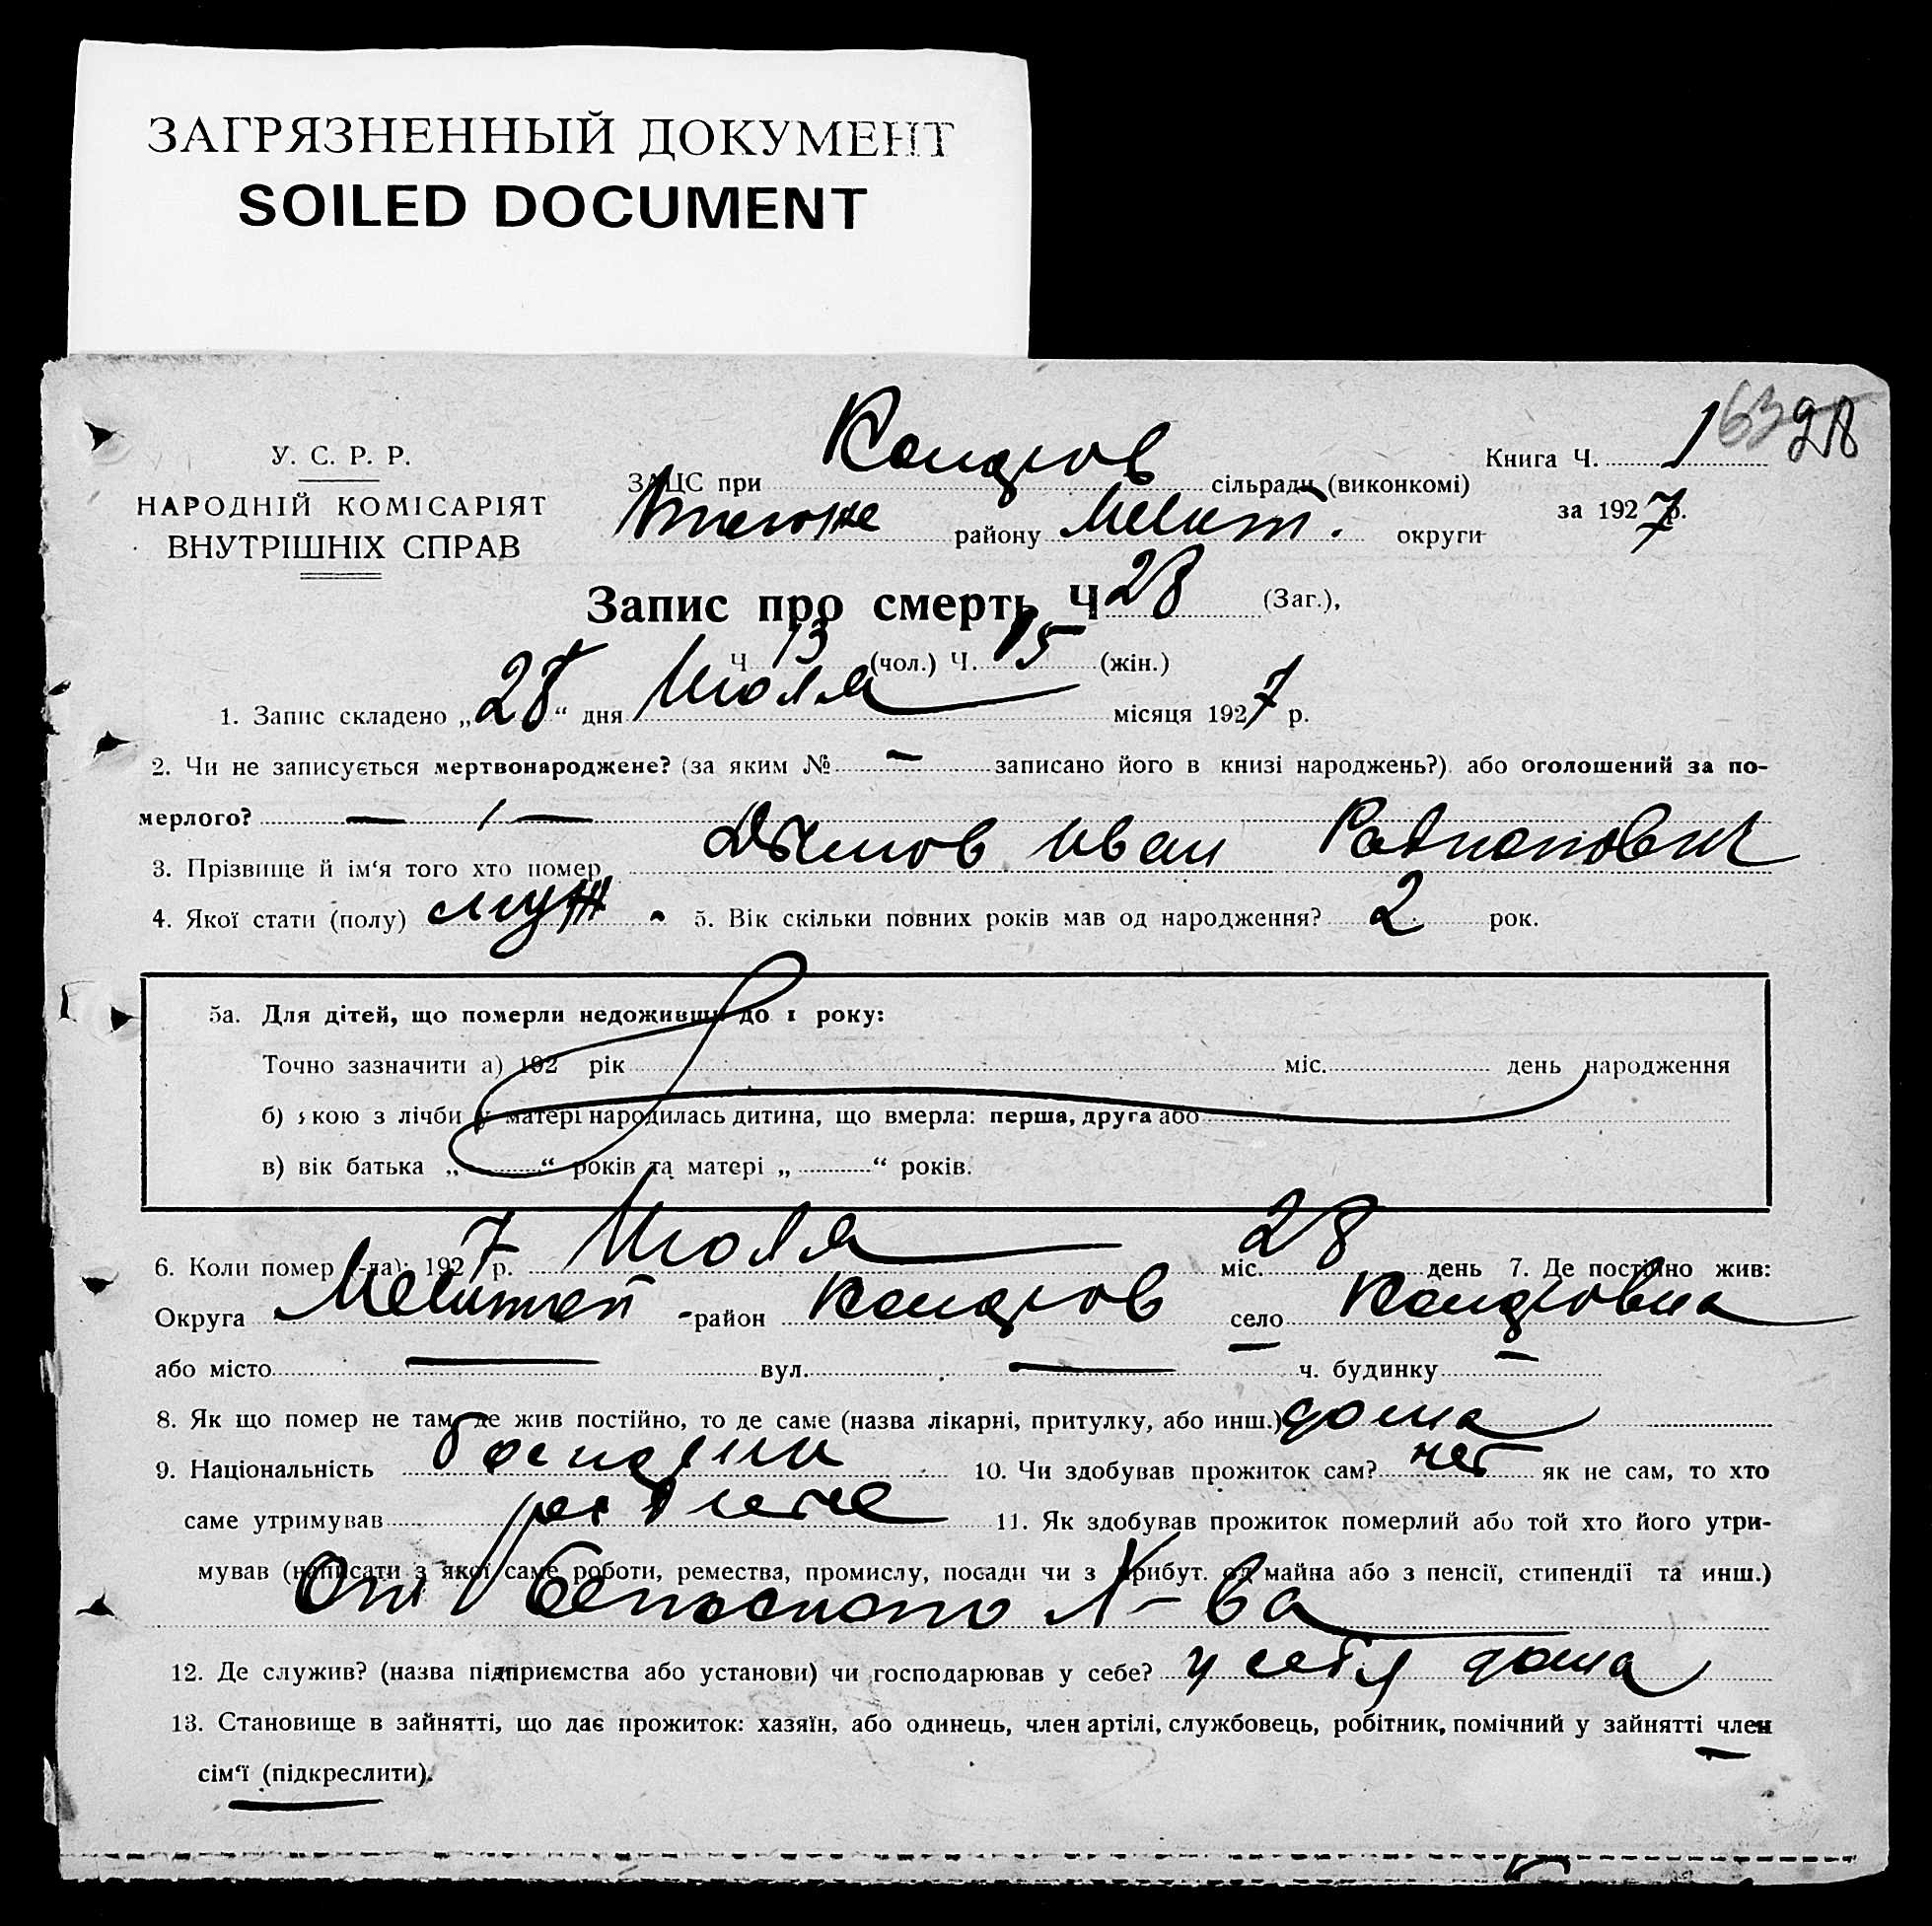 ЗАГРЯЗНЕННЫЙ ДОКУМЕНТ
SOILED DOCUMENT
У. С. Р. Р.
НАРОДНІЙ КОМІСАРІЯТ
ВНУТРІШНІХ СПРАВ
ЗАЦС при сільради (виконкомі)
району Мелит. округи
Книга Ч. 1 63 28
за 1927 р.
Запис про смерть Ч 28 (Заг.),
Ч 13 (чол.) Ч. 15 (жін.)
1. Запис складено „28“ дня Июля місяця 1927 р.
2. Чи не записується мертвонароджене? (за яким № — записано його в книзі народжень?) або оголошений за по-
мерлого? — / —
3. Прізвище й ім‘я того хто помер Иван
4. Якої стати (полу) муж. 5. Вік скільки повних років мав од народження? 2 рок.
5а. Для дітей, що померли недоживши до 1 року:
Точно зазначити а) 192 рік міс. день народження
б) якою з лічби у матері народилась дитина, що вмерла: перша, друга або
в) вік батька „ “ років та матері „ “ років.
6. Коли помер (-ла): 1927 р. Июля міс. 28 день 7. Де постійно жив:
Округа район село
або місто — вул. — ч. будинку —
8. Як що помер не там, де жив постійно, то де саме (назва лікарні, притулку, або инш.) дома
9. Національність 10. Чи здобував прожиток сам? нет як не сам, то хто
саме утримував 11. Як здобував прожиток померлий або той хто його утри-
мував (написати з якої саме роботи, ремества, промислу, посади чи з прибут. од майна або з пенсії, стипендії та инш.)
От сельского х-ва
12. Де служив? (назва підприємства або установи) чи господарював у себе? у себя дома
13. Становище в зайнятті, що дає прожиток: хазяїн, або одинець, член артілі, службовець, робітник, помічний у зайнятті член
сім‘ї (підкреслити).